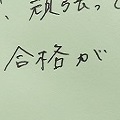 、頑張って
合格が